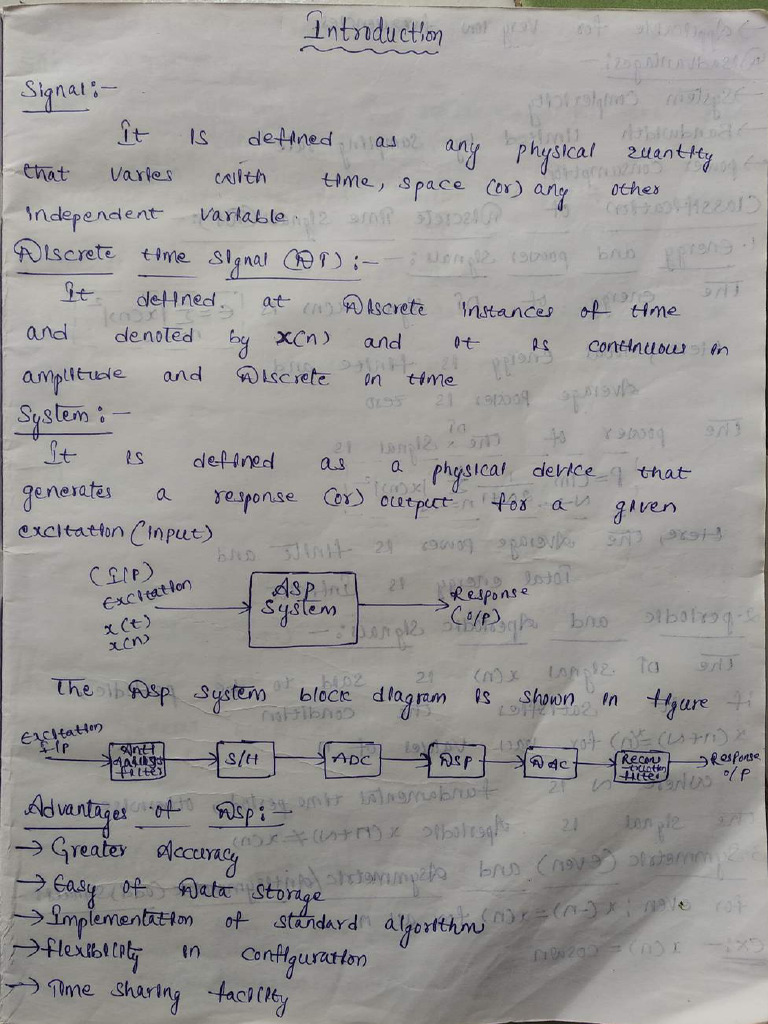 Introduction
Signal:-
It is defined as any physical quantity
that varies with time, space (or) any other
independent variable.
Discrete time signal (DT) :-
It defined. at Discrete instances of time
and denoted by x(n) and it is continuous in
amplitude and Discrete in time
System:-
It is defined as a physical device that
generates a response (or) output for a given
excitation (input)
(I/P)
excitation
x(t)
x(n)
DSP
System
Response
(O/P)
The DSP system block diagram is shown in figure
Excitation
I/P
Anti
Aliasing
filter
S/H
ADC
DSP
DAC
Recon
struction
filter
Response
O/P
Advantages of DSP:-
→ Greater Accuracy
→ Easy of Data Storage
→ Implementation of standard algorithm
→ flexibility in configuration
→ Time sharing facility